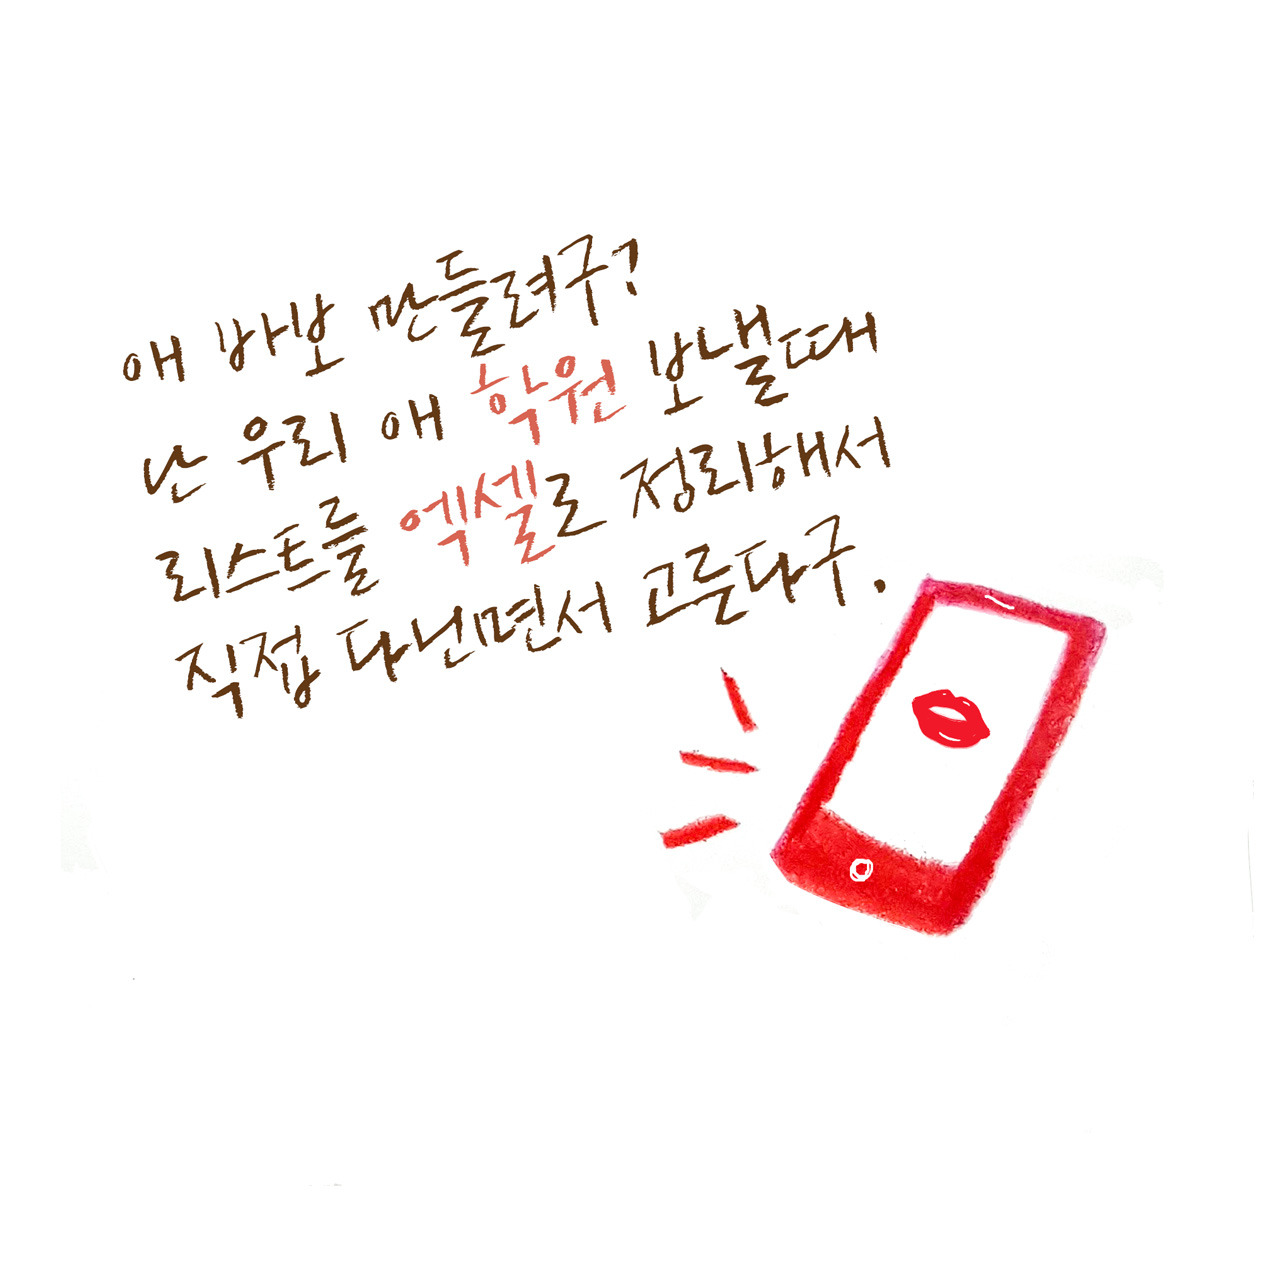 애 바보 만들려구?
난 우리 애 학원 보낼때
리스트를 엑셀로 정리해서
직접 다닌면서 고른다구.